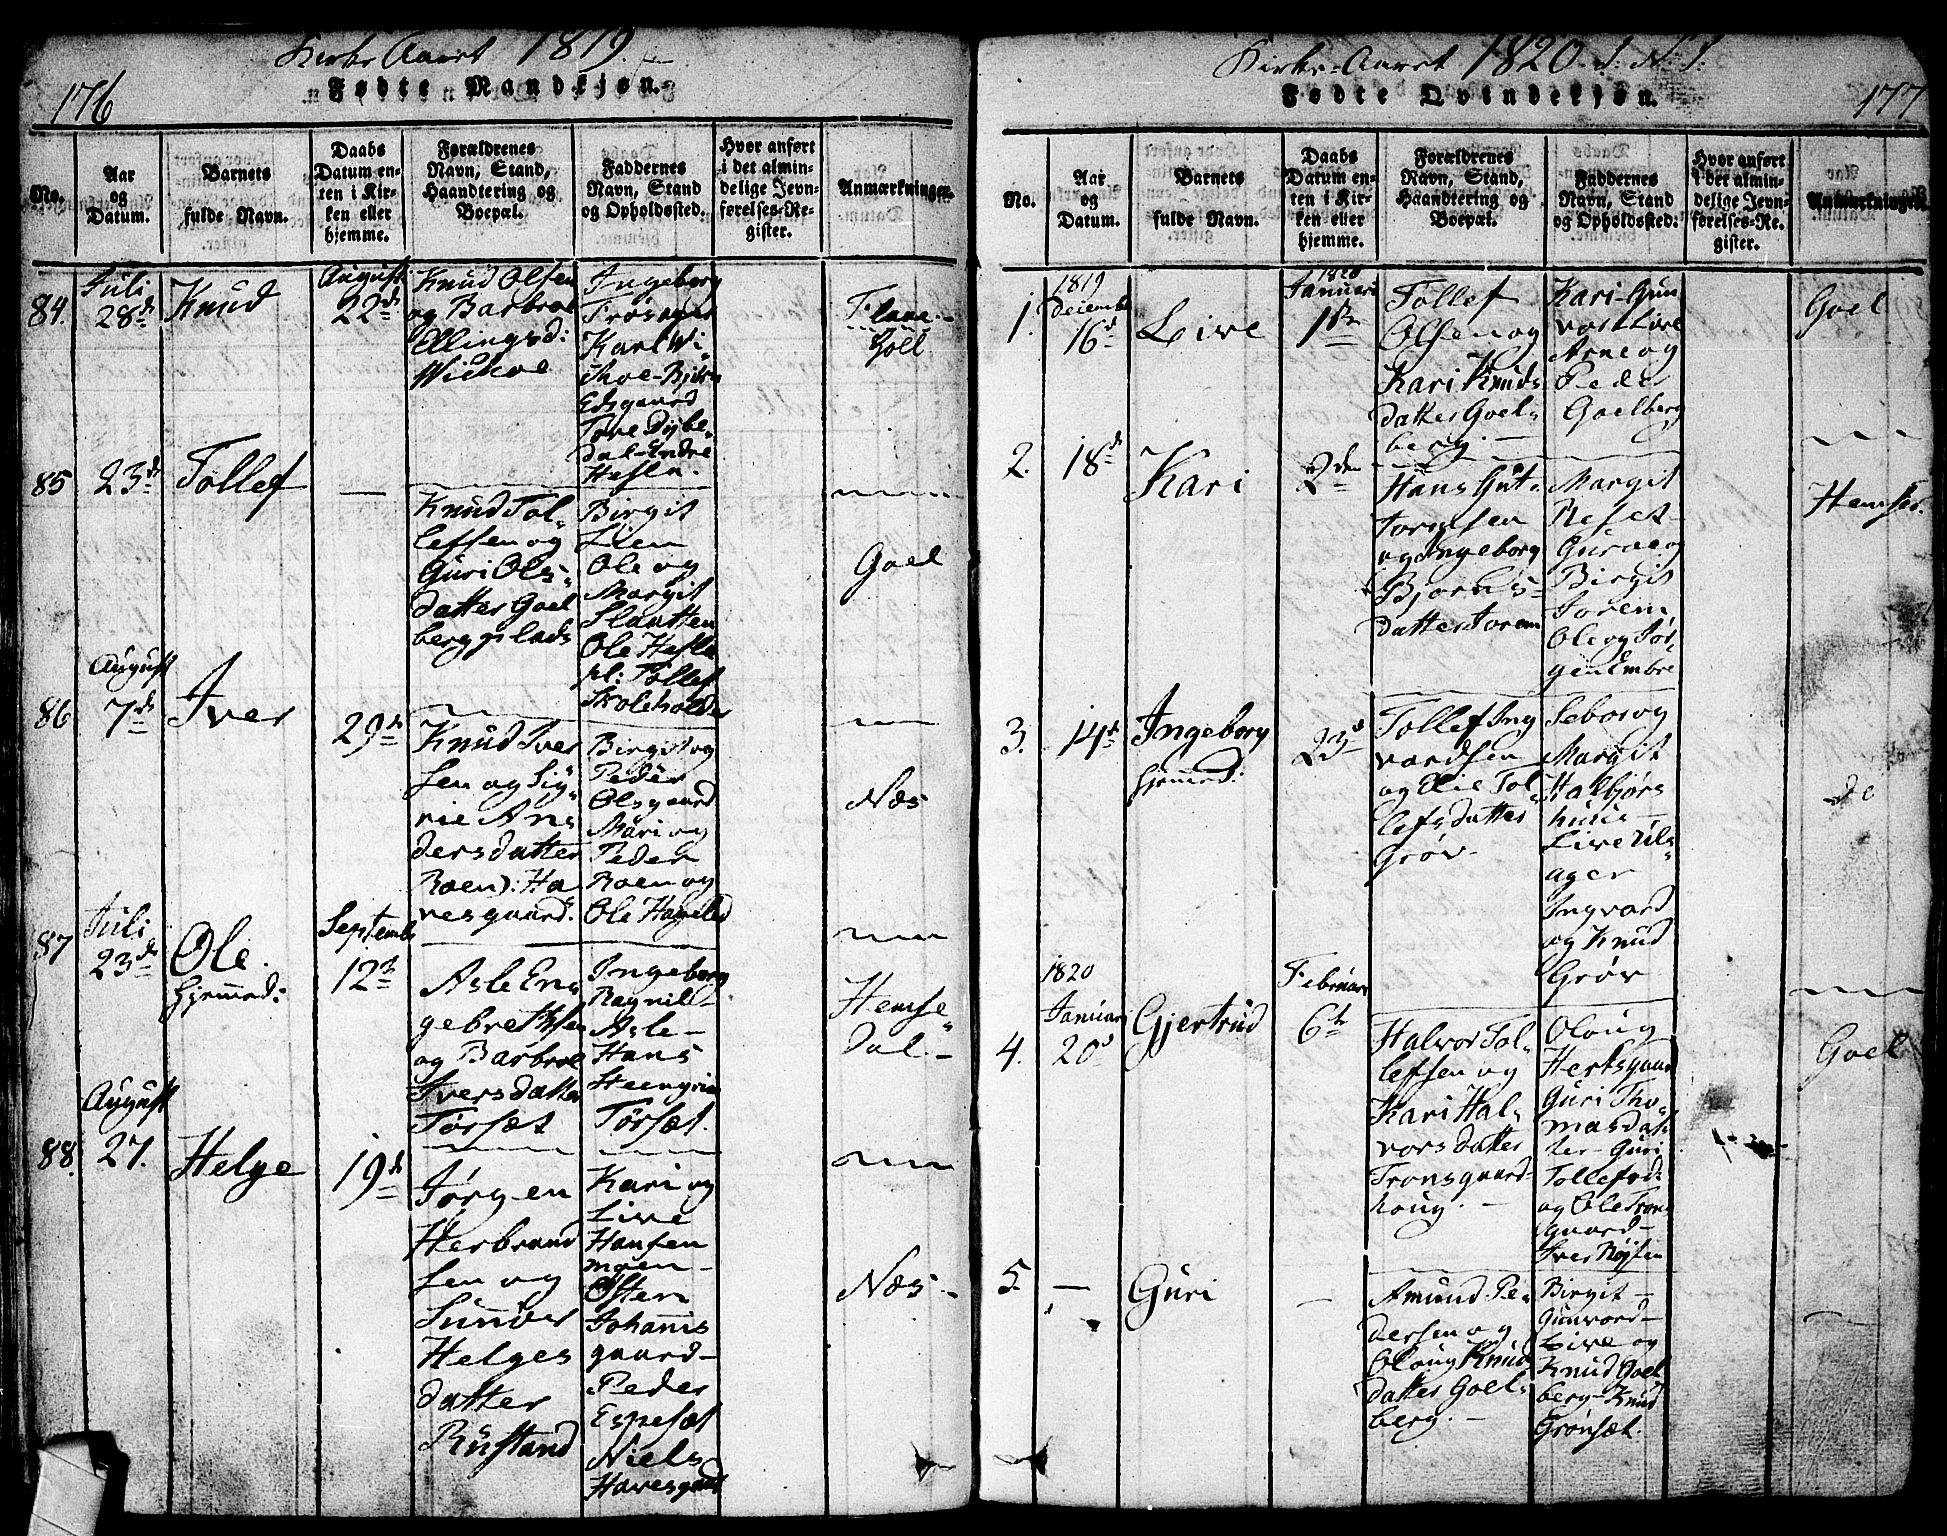 176
Kirke Aaret 1819.
Fødte Mandkjøn.
No.
Aar
og
Datum.
Barnets
fulde Navn.
Daabs
Datum en-
ten i Kir-
ken eller
hjemme.
Forældrenes
Navn, Stand,
Haandtering og
Boepæl.
Faddernes
Navn, Stand
og Opholdssted.
Hvor anført
i det almin-
delige Jevn-
førelses-Re-
gister.
Anmærkninger.
84.
Juli
28de
Knud
August
22de
Knud Olsen
og Barbroe
Ellingsd:
Wickoe
Ingeborg
Karl Wi
Bjørn
Edsgaard
Tore Dybe
dal - Endre
Hesla.
Flaae
Goel
85
23de
Tollef
—
Knud Tol-
lefsen og
Guri Ols-
datter Goel
berg plads
Birgit
Lien
Ole og
Margit
Slaatten
Ole Hesla
pl: Tollef
Skoleholder
Goel
86
August
7de
Iver
29de
Knud Iver
sen og Sig-
rie An-
dersdatter
Roen): Ha
vesgaard.
Birgit og
Peder
Olsgaard
Mari og
Peder
Roen og
Ole
Næs
87
Juli
23de
Ole.
hjemmed:
Septemb
12te
Asle En-
gebretsen
og Barbroe
Iversdatter
Tørsæt
Ingeborg
Ragnild
Asle -
Hans
Tørsæt.
Hemse
dal -
88.
August
27.
Helge
19de
Jørgen
Herbrand
sen og
Sunder
Helges
datter
Rustand
Kari og
Live
Hansen
moen -
Østen
Johannis
gaard -
Peder
Espesæt
Niels
Havesgaard
Næs -
177
Kirke-Aaret 1820. I. N. J.
Fødte Qvindekjøn.
No.
Aar
og
Datum.
Barnets
fulde Navn.
Daabs
Datum en-
ten i Kir-
ken eller
hjemme.
Forældrenes
Navn, Stand,
Haandtering og
Boepæl.
Faddernes
Navn, Stand
og Opholdssted.
Hvor anført
i det almin-
delige Jevn-
førelses-Re-
gister.
Anmærkninger.
1.
1819
Decemb
16d
Live
1820
Januari
1te
Tollef
Olsen og
Kari Knuds
datter Goel-
berg. -
Kari - Gun
vor Live
Arne og
Peder
Goelberg
Goel
2.
18de
Kari
2den
Hans Gut-
tormsen
og Ingeborg
Bjørns-
datter Torem
Margit
Reset -
Guroe og
Birgit
Torem
Ole og Jør-
gen Embre
Hemsed.
3.
14de
Ingeborg
hjemmed:
23d
Tollef Ing
vardsen
og Elie Tol-
lefsdatter
Grøv -
Sebor og
Margit
Halbjørs
huus -
Live Uls-
ager
Ingvard
og Knud
Grøv
do
4.
1820
Januari
20d
Gjertrud
Februari
6te
Halvor Tol-
lefsen og
Kari Hal-
vorsdatter
Tronsgaard-
houg. -
Oloug
Guri Tho-
masdat-
ter - Guri
Tollefsd:
og Ole Tron
gaard -
Iver
Goel
5.
—
Guri
—
Amund Pe-
dersen og
Oloug Knuds
datter Goel-
berg. -
Birgit -
Gunvord -
Live og
Knud Goel
berg - Knud
Grønsæt.